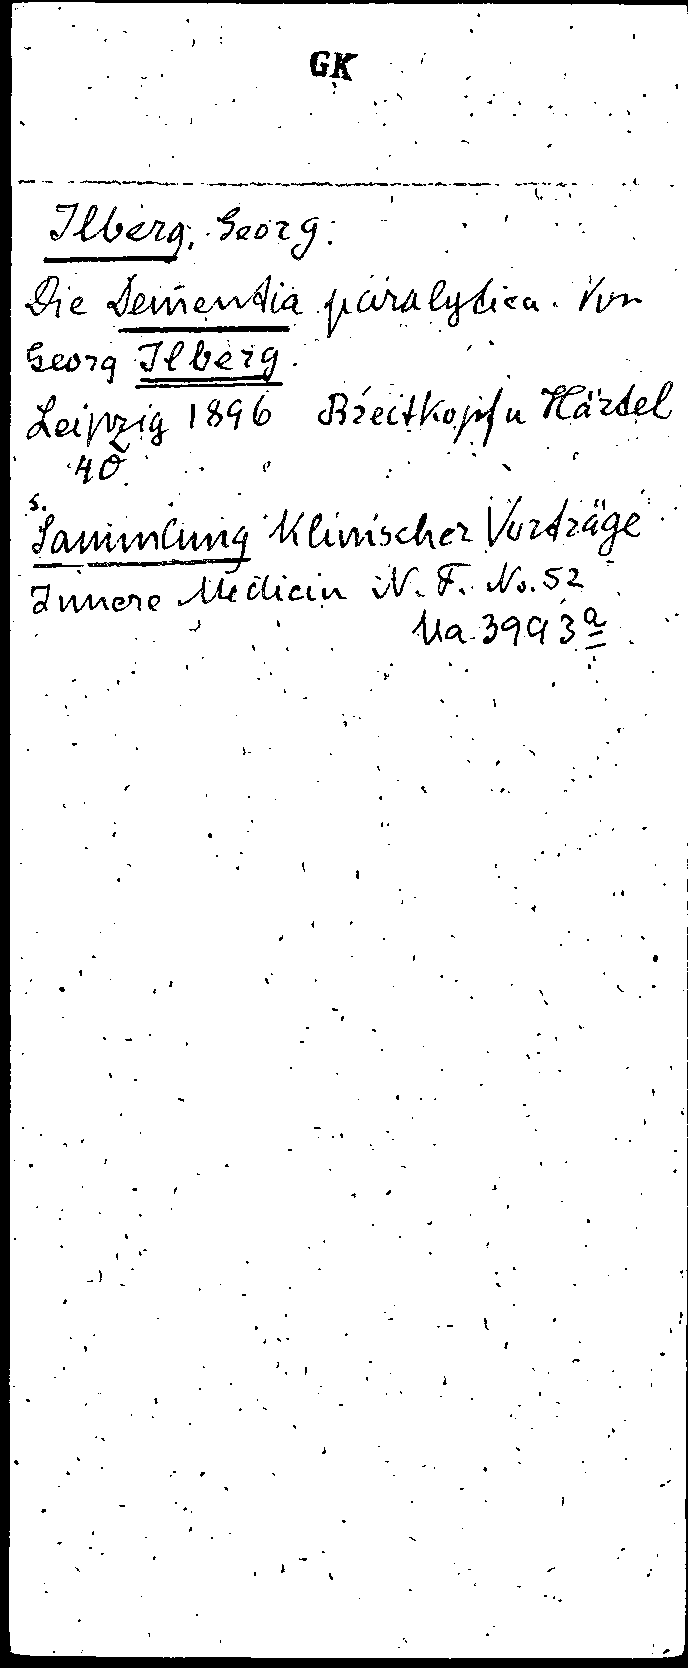 GK
Ilberg, Georg.
Die Dementia paralytica. Von
Georg Ilberg.
Leipzig 1896 Breitkopf u Härtel
4°
s.
Sammlung Klinischer Vorträge
Innere Medicin N. F. No. 52
Ua 3993 a